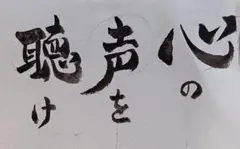 心の
声を
聴け